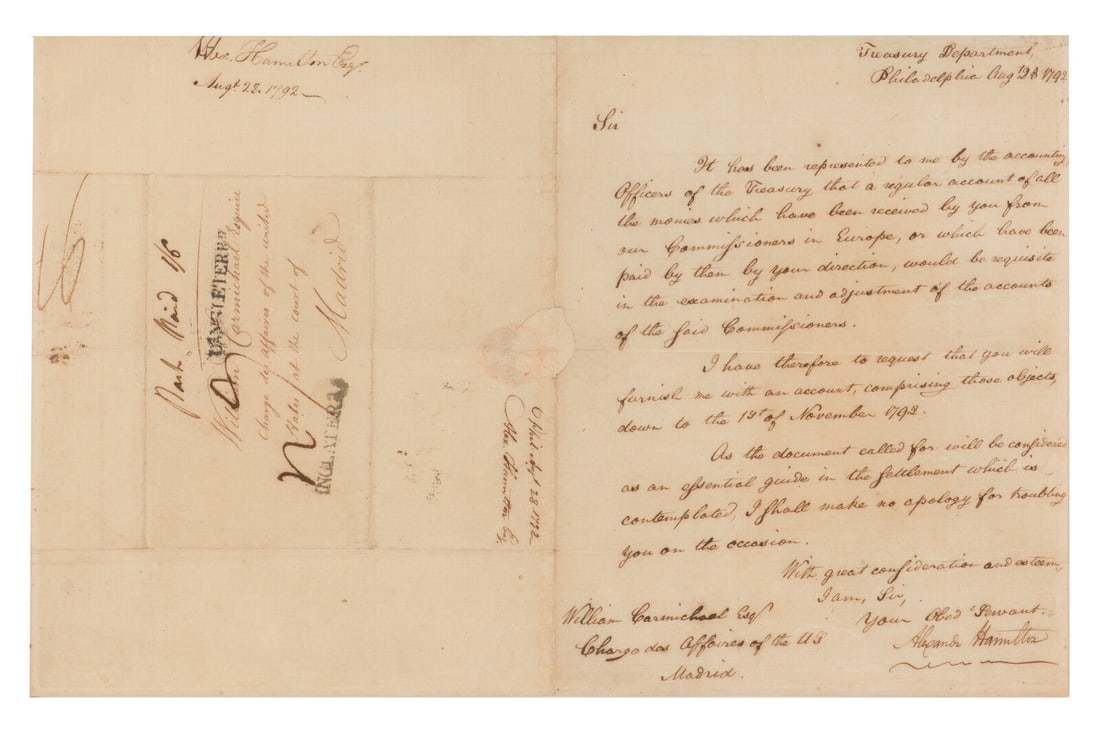 Alex. Hamilton Esqr.
Augt 22. 1792
Pack Paid 1/6
D'ANGLETERRE
William Carmichael Esquire
Charge des affaires of the united
States at the Court of
Madrid
INGLATERRA
Phil. Augt 28 1792
Alex Hamilton Esq
Treasury Department,
Philadelphia Augt 28 1792
Sir
It has been represented to me by the accounting
Officers of the Treasury that a regular account of all
the monies which have been received by you from
our Commissioners in Europe, or which have been
paid by them by your direction, would be requisite
in the examination and adjustment of the accounts
of the said Commissioners.
I have therefore to request that you will
furnish me with an account, comprising those objects,
down to the 1st of November 1792.
As the document called for will be considered
as an essential guide in the settlement which is
contemplated, I shall make no apology for troubling
you on the occasion.
With great consideration and esteem,
I am, Sir,
Your Obed Servant.
Alexander Hamilton
William Carmichael Esqr
Charge das Affaires of the US
Madrid.